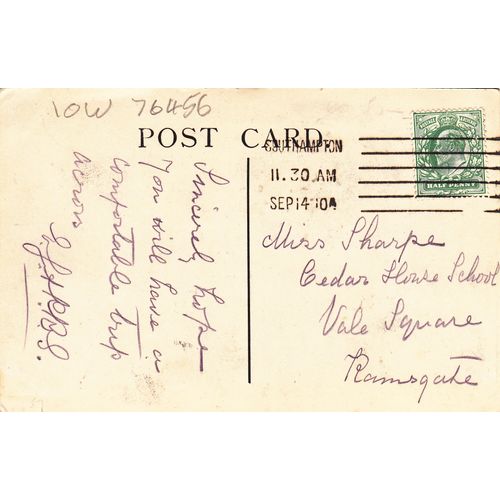 IOW 76456
POST CARD.
SOUTHAMPTON
11.30 AM
SEP 14 10
HALF PENNY
Sincerely hope
you will have a
comfortable trip
across
Miss Sharpe
Cedar House School
Vale Square
Ramsgate